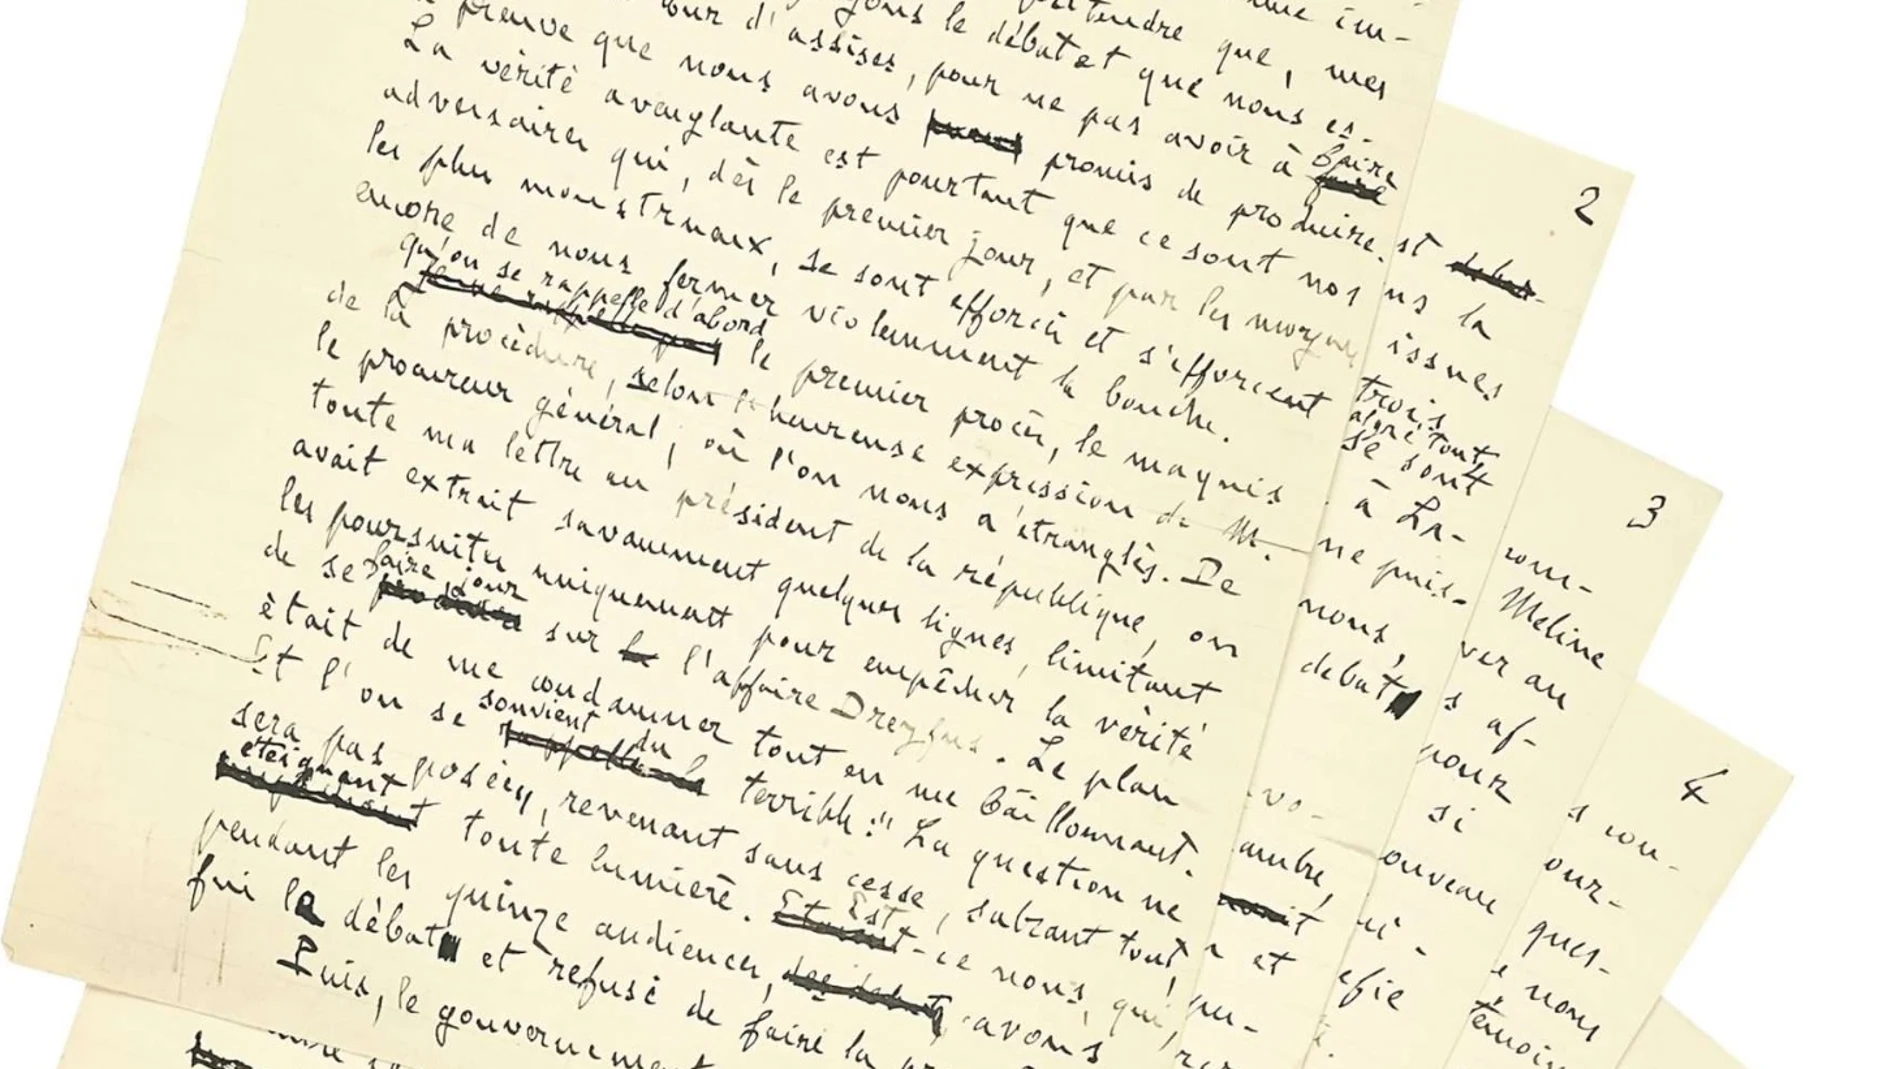 im-
prétendre que, mes
le débat et que nous es-
d'assises, pour ne pas avoir à faire
preuve que nous avons promis de produire.
La vérité aveuglante est pourtant que ce sont nos
adversaires qui, dès le premier jour, et par les moyens
les plus monstrueux, se sont efforcés et s'efforcent
encore de nous fermer violemment la bouche.
qu'on se rappelle d'abord le premier procès, le maquis
de la procédure, selon l'heureuse expression de M.
le procureur général, où l'on nous a étranglés. De
toute ma lettre au président de la république, on
avait extrait savamment quelques lignes, limitant
les poursuites uniquement pour empêcher la vérité
de se faire jour sur l'affaire Dreyfus. Le plan
était de me condamner tout en me bâillonnant.
Et l'on se souvient du terrible: "La question ne
sera pas posée", revenant sans cesse, sabrant tout,
éteignant toute lumière. Est-ce nous, qui,
pendant les quinze audiences, avons
fui le débat et refusé de faire la
Puis, le gouvernement
2
st
ns la
issues
trois
tout
se sont
à La-
ne puis-
nous,
debat
et
3
com-
Méline
ver au
s af-
pour
si
ouveau
4
s con-
our-
ques-
nous
témoin